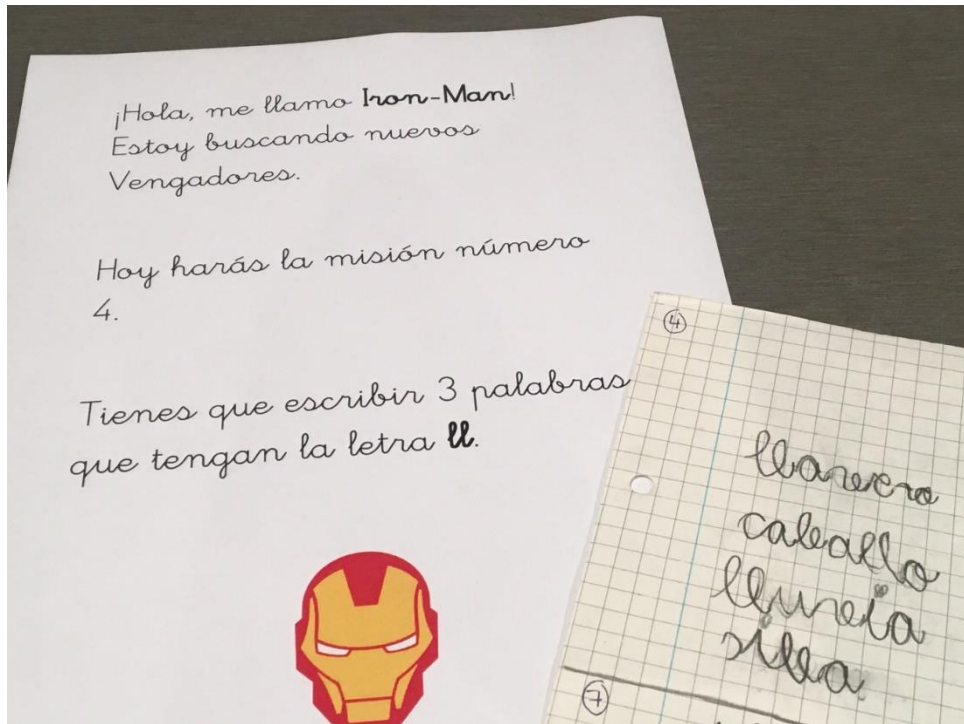 ¡Hola, me llamo Iron-Man!
Estoy buscando nuevos
Vengadores.
Hoy harás la misión número
4.
Tienes que escribir 3 palabras
que tengan la letra ll.
4
llavero
caballo
lluvia
silla
7